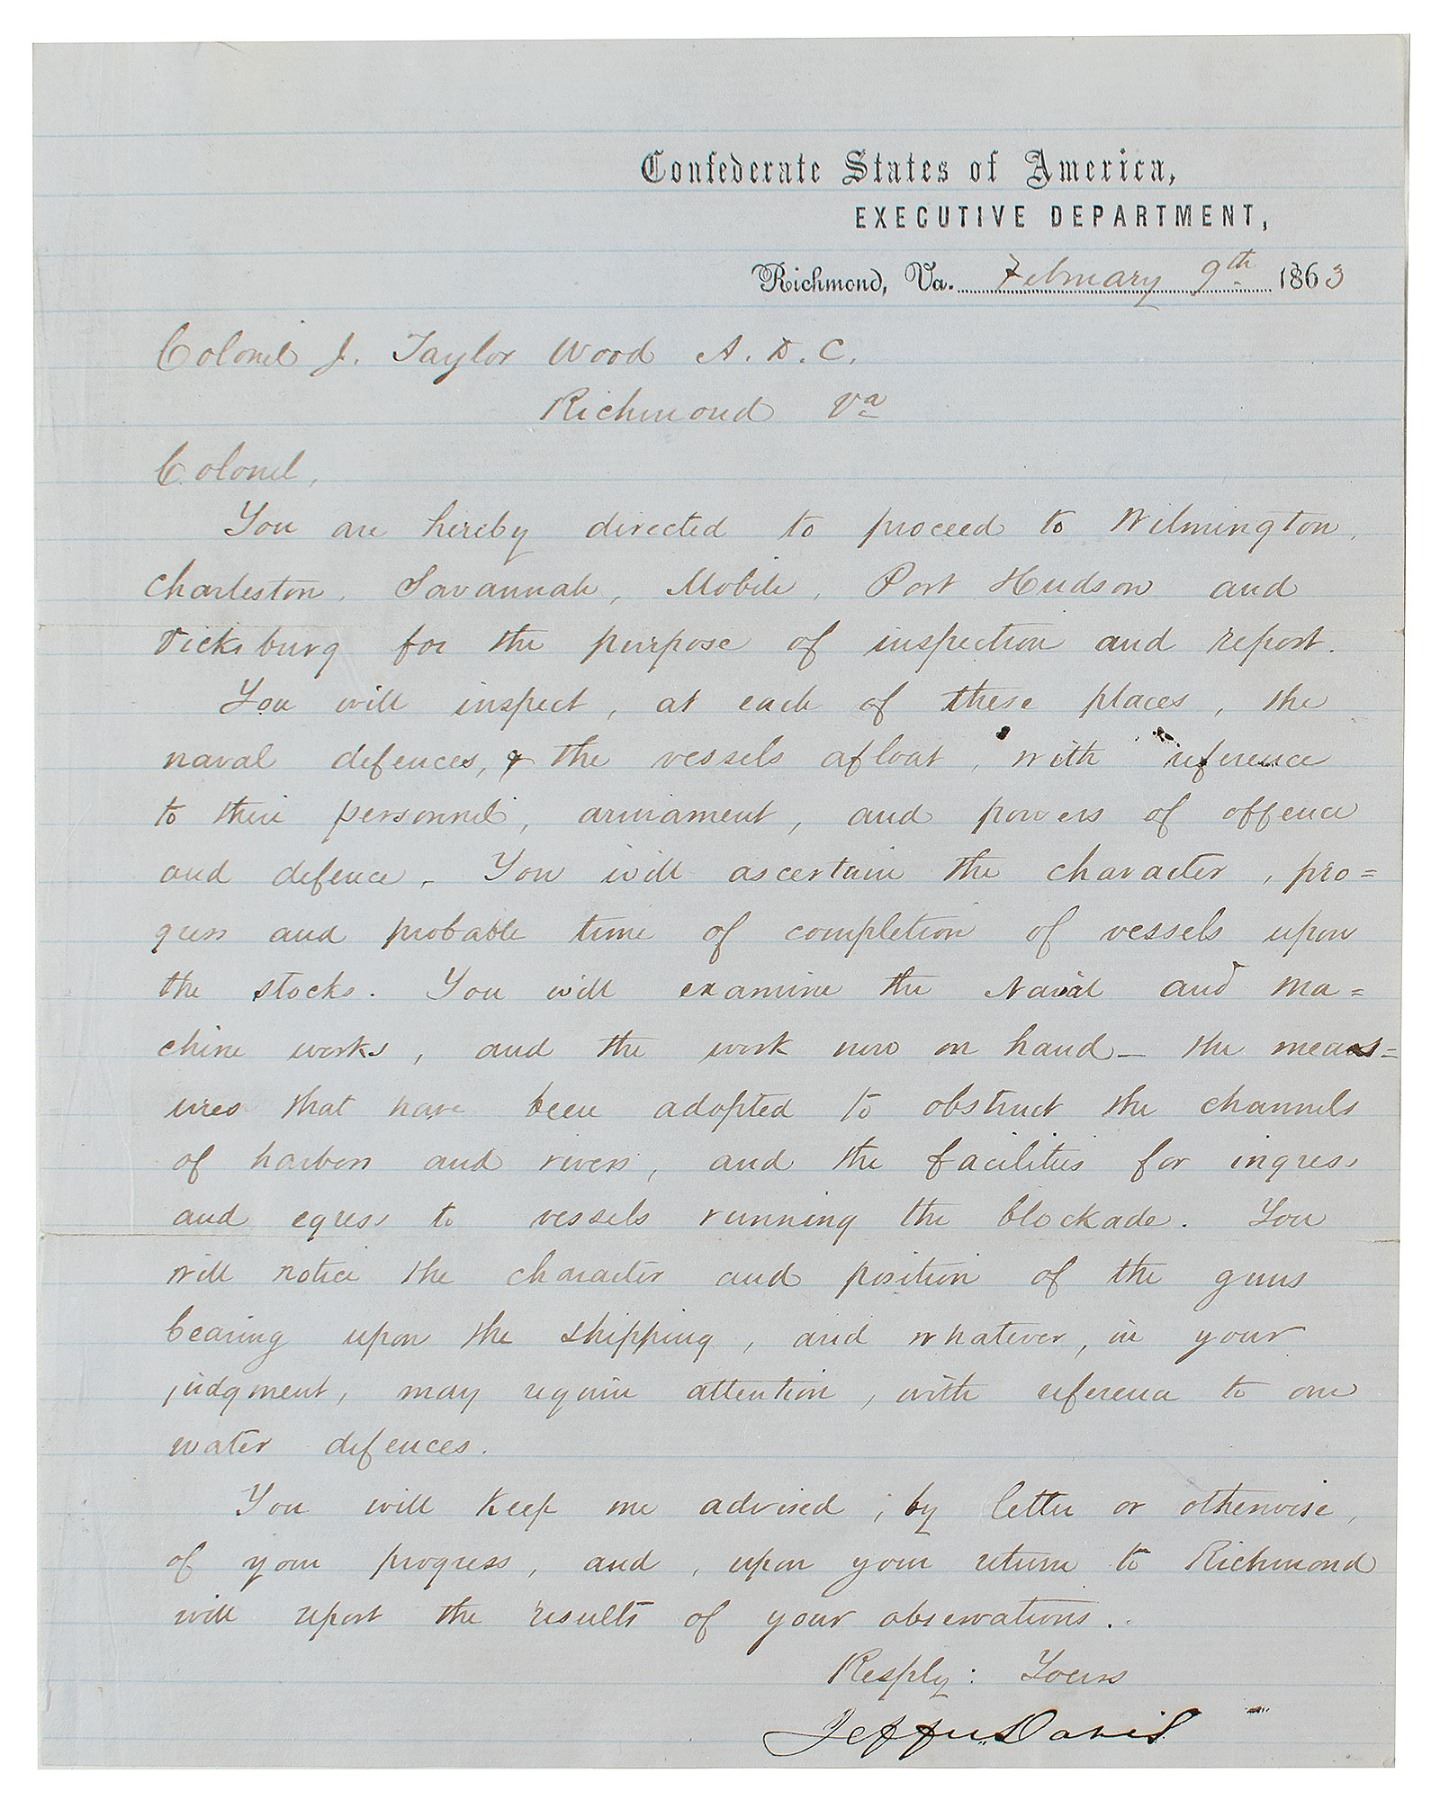 Confederate States of America,
EXECUTIVE DEPARTMENT,
Richmond, Va. February 9th 1863
Colonel J. Taylor Wood A. D. C.
Richmond Va
Colonel,
You are hereby directed to proceed to Wilmington,
Charleston, Savannah, Mobile, Port Hudson and
Vicksburg for the purpose of inspection and report.
You will inspect, at each of these places, the
naval defences, & the vessels afloat, with reference
to their personnel, armament, and powers of offence
and defence. You will ascertain the character, pro=
gress and probable time of completion of vessels upon
the stocks. You will examine the Naval and Ma=
chine works, and the work now on hand — the meas=
ures that have been adopted to obstruct the channels
of harbors and rivers, and the facilities for ingress
and egress to vessels running the blockade. You
will notice the character and position of the guns
bearing upon the shipping, and whatever, in your
judgment, may require attention, with reference to our
water defences.
You will keep me advised, by letter or otherwise,
of your progress, and, upon your return to Richmond
will report the results of your observations.
Resply: Yours
Jeffn. Davis